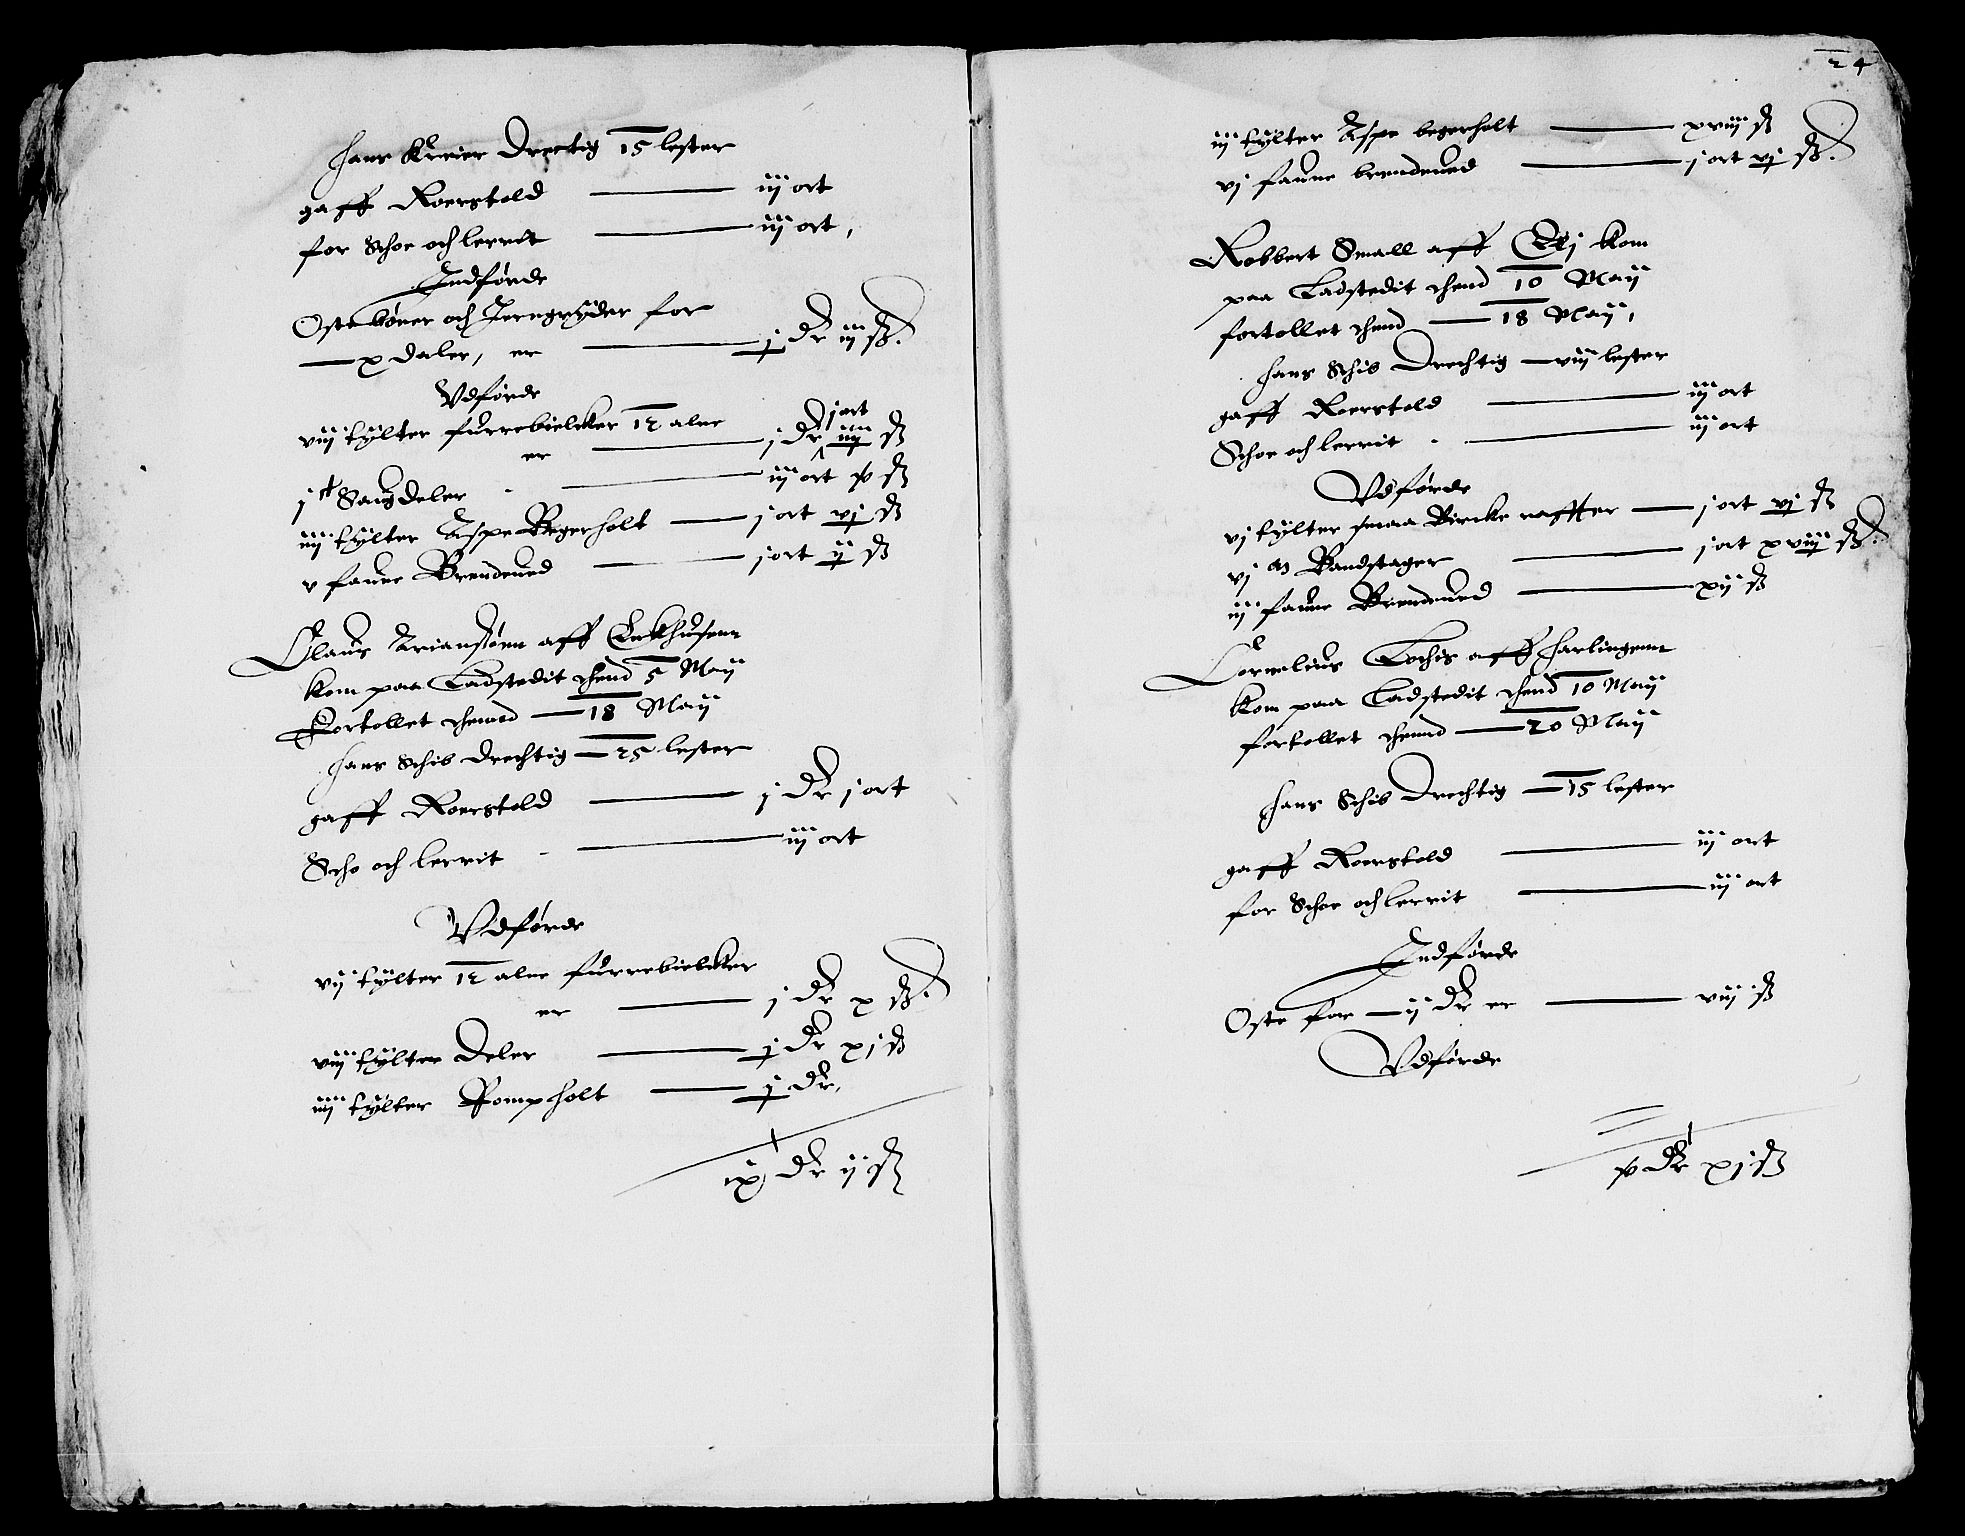 hans Kreier Drectig 15 lester
gaff Roerstold — iij ort
for Schoe och lerrit — iij ort,
Indførde
Oste bøner och Jerngryder for
— x daler, er — j dr iij ß.
Vdførde
viij tylter furrebielcker 12 alne
er — j dr jort iiij ß
j Saugdeler — iij ort ß
iiij tylter Aspe Begerholt — j ort vj ß
v faune Brendeued — j ort ij ß
Claus Arianssønn aff Enkhusenn
kom paa Ladstedit thend 5 Maij
Fortollet thennd — 18 Maij
hans Schib drechtig — 25 lester
gaff Roerstold — j dr j ort
Scho och lerrit — iij ort
Vdførde
vij tylter 12 alne furrebielcker
er — j dr x ß.
viij tylter Deler — j dr xj ß
iiij tylter Pompholt — j dr,
ix dr ij ß
24
iij tylter Aspe begerholt — xviij ß
vj faune brendeued — j ort vj ß.
Robbert Small aff kom
paa Ladstedit thend 10 Maij
fortollet thend — 18 Maij,
hans Schib Drechtig — viij lester
gaff Roerstold — iij ort
Schoe och lerrit — iij ort
Vdførde
vj tylter smaa Bircke raffter — j ort vj ß
vj Bandstager — j ort xviij ß.
iij faune Brendeued — xij ß
Cornelius Lochis aff Harlingenn
kom paa Ladstedit thend 10 Maij
fortollet thennd — 20 Maij
hans Schib Drechtig — 15 lester
gaff Roerstold — iij ort
for Schoe och lerrit — iij ort
Indførde
Oste for — ij dr er — viij ß
Vdførde
v dr xj ß